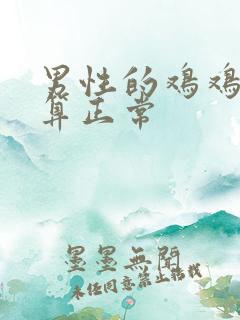 男性的鸡鸡
算正常
墨墨無閒
未经同意禁止搭救